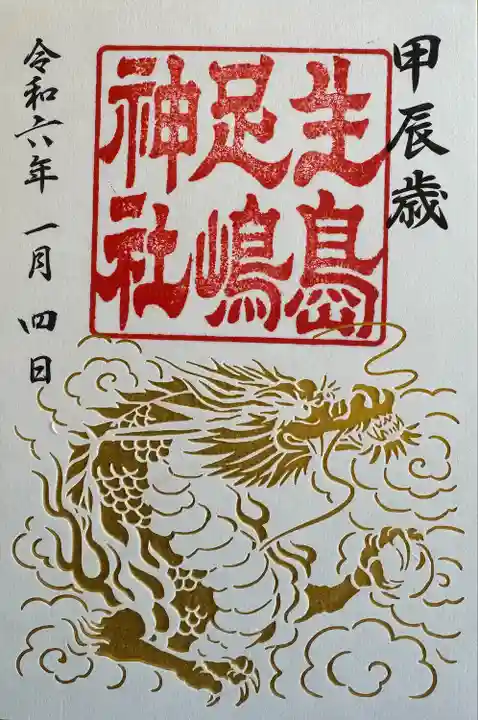 甲辰歳
生島
足嶋
神社
令和六年 一月 四日